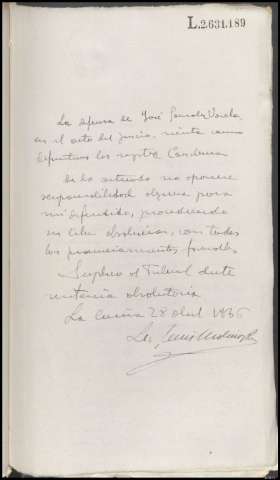 L.2.631.189
La defensa de José González Varela,
en el acto del juicio,
definitivas las
De lo actuado no aparece
responsabilidad alguna para
mi defendido, procediendo
su libre absolución, con todos
los pronunciamientos favorables
Suplico al Tribunal dicte
sentencia absolutoria
La Coruña 28 abril 1936